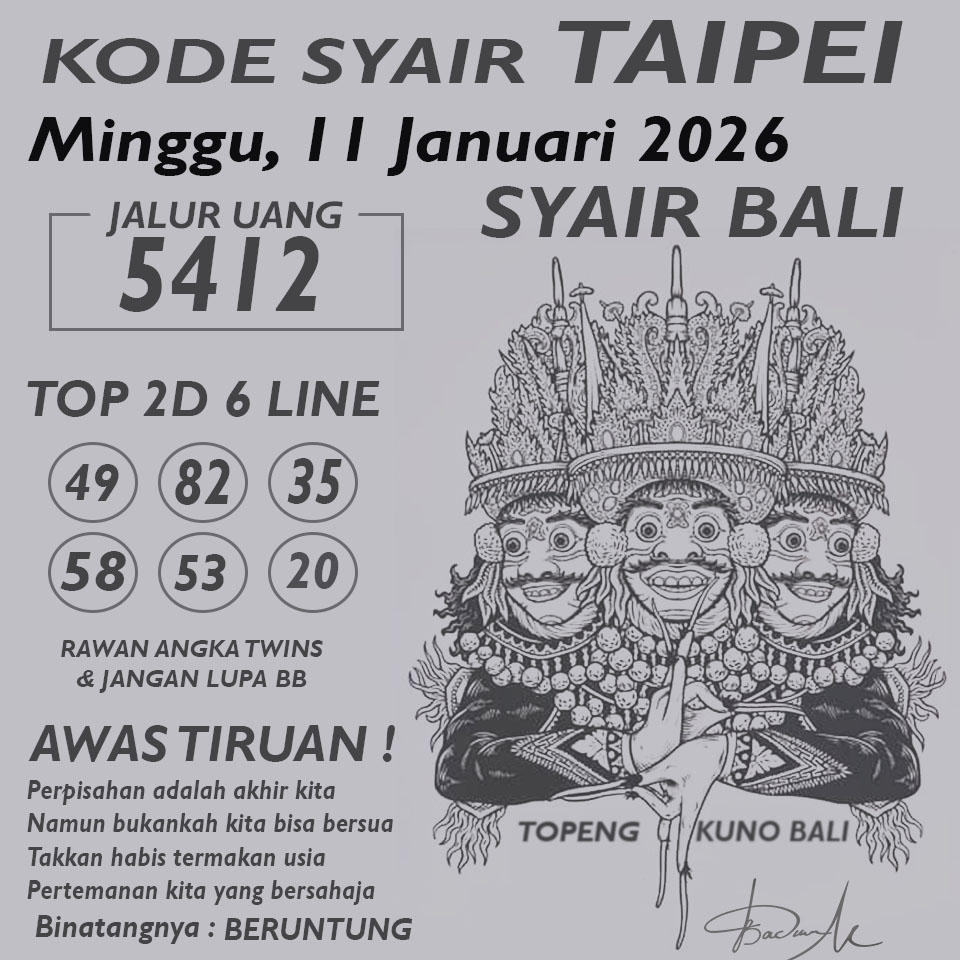 KODE SYAIR TAIPEI
Minggu, 11 Januari 2026
SYAIR BALI
JALUR UANG
5412
TOP 2D 6 LINE
49 82 35
58 53 20
RAWAN ANGKA TWINS
& JANGAN LUPA BB
AWAS TIRUAN !
Perpisahan adalah akhir kita
Namun bukankah kita bisa bersua
Takkan habis termakan usia
Pertemanan kita yang bersahaja
Binatangnya : BERUNTUNG
TOPENG KUNO BALI